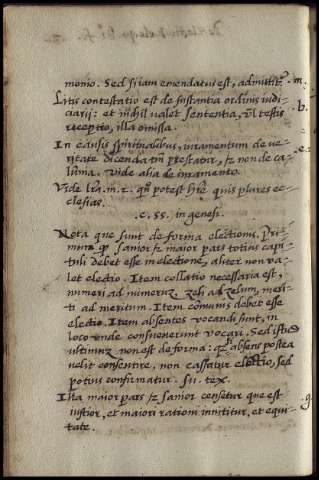 monio. Sed si iam emendatus est, admittit̃. m.
Litis contestatio est de sustantia ordinis iudi-
ciarij: et nihil valet sententia, vl̃ testis b.
receptio, illa omissa.
In causis spiritualibus, iuramentum de ve- c.
ritate dicenda tm̃ prestatur, sz non de ca-
luma. Vide alia de iuramento.
Vide lr̃a. m. c. qr̃ potest hr̃e quis plures ec-
clesias.
c. 55. in genesi.
Nota que sunt de forma electionis. Pri-
mum qr̃ sanior sz maior pars totius capi-
tuli debet esse in electione, aliter non va-
let electio. Item collatio necessaria est,
numeri ad numerum, zeli ad zelum, meri-
ti ad meritum. Item comunis debet esse
electio. Item absentes vocandi sunt, in
loco unde consueverunt vocari. Sed istud
ultimum non est de forma: qr̃ si absens postea
velit consentire, non cassatur electio, sed
potius confirmatur. su. tex.
Illa maior pars sz sanior censetur que est g.
iustior, et maiori rationi innititur, et equi-
tate.